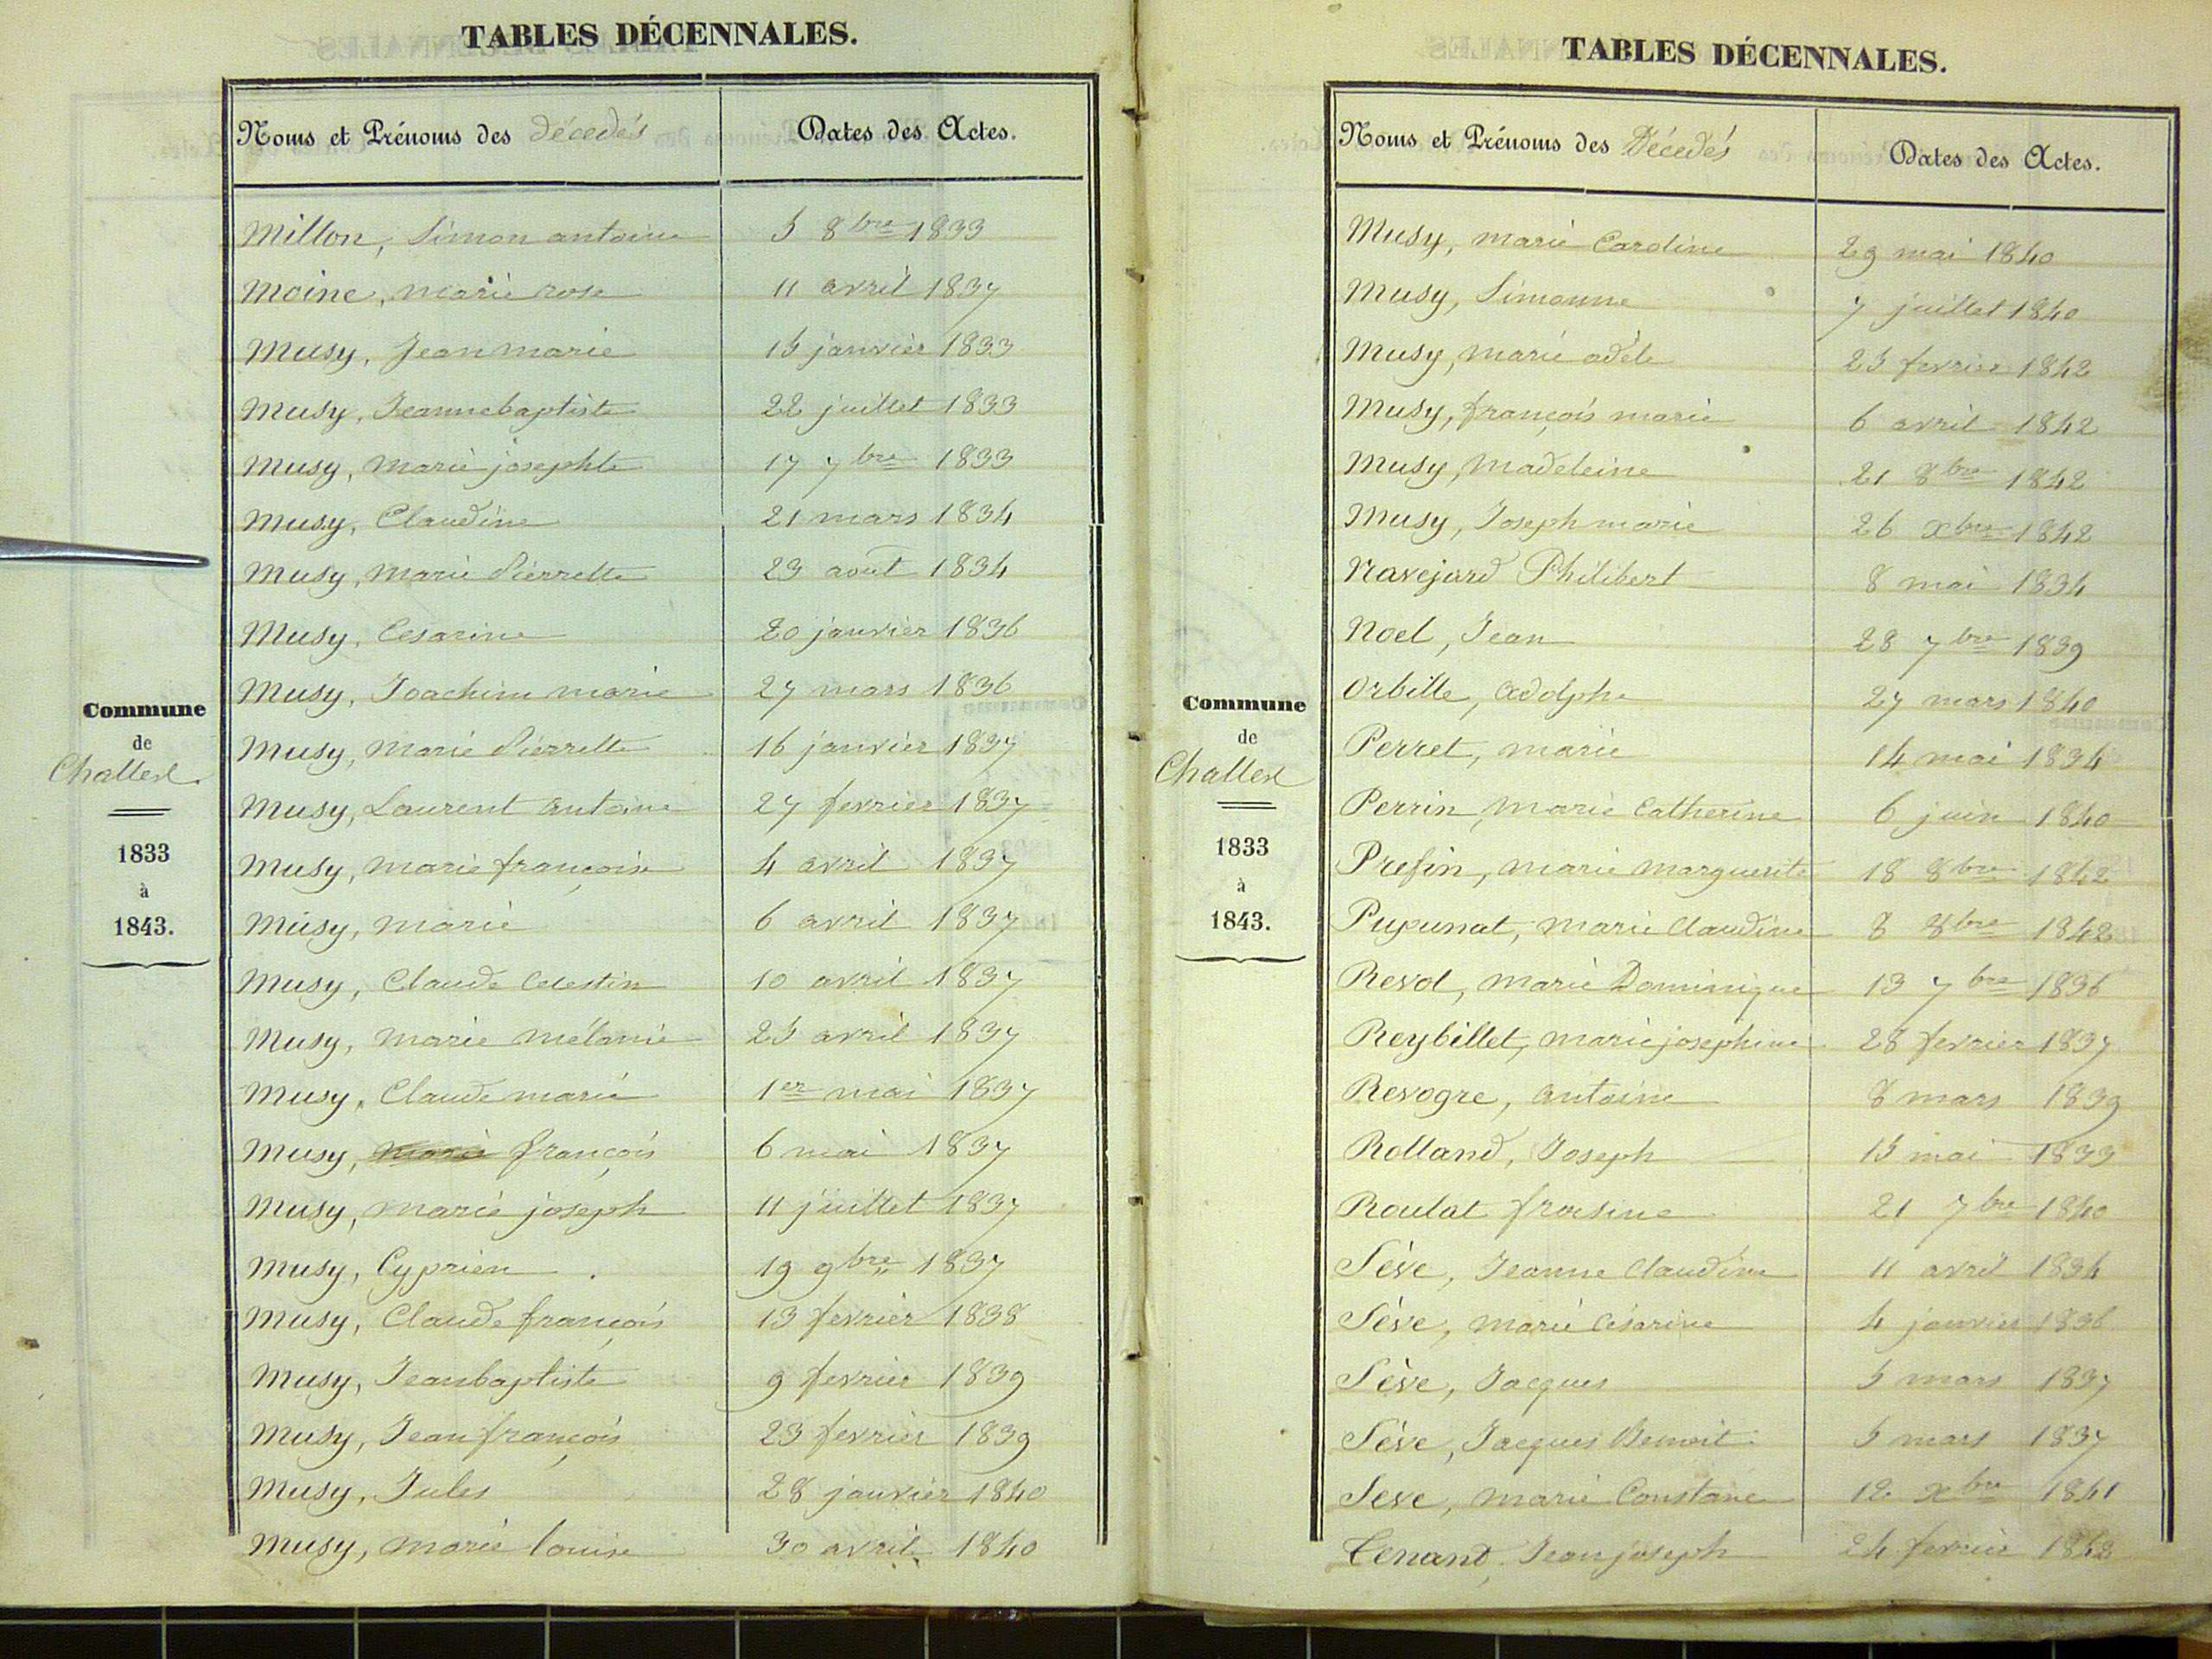 TABLES DÉCENNALES.
Noms et Prénoms des décedés Dates des Actes.
Millon, Simon antoine 5 8bre 1833
Moine, marie rose 11 avril 1837
Musy, Jean marie 15 janvier 1833
Musy, Jeanne baptiste 22 juillet 1833
Musy, marie josephte 17 7bre 1833
Musy, Claudine 21 mars 1834
Musy, marie Pierrette 23 août 1834
Musy, Cesarine 20 janvier 1836
Musy, Joachim marie 27 mars 1836
Musy, marie Pierrette 16 janvier 1837
Musy, Laurent antoine 27 fevrier 1837
Musy, marie françoise 4 avril 1837
Musy, marie 6 avril 1837
Musy, Claude Celestin 10 avril 1837
Musy, marie mélanie 25 avril 1837
Musy, Claude marie 1er mai 1837
Musy, marie françois 6 mai 1837
Musy, marie joseph 11 juillet 1837
Musy, Cyprien . 19 9bre 1837
Musy, Claude françois 13 fevrier 1838
Musy, Jean baptiste 9 fevrier 1839
Musy, Jean françois 23 fevrier 1839
Musy, Jules 28 janvier 1840
Musy, marie louise 30 avril 1840
Commune
de
Challex
1833
à
1843.
TABLES DÉCENNALES.
Noms et Prénoms des Décedés Dates des Actes.
Musy, marie Caroline 29 mai 1840
Musy, Simonne 7 juillet 1840
Musy, marie adèle 25 fevrier 1842
Musy, françois marie 6 avril 1842
Musy, Madeleine 21 8bre 1842
Musy, Joseph marie 26 xbre 1842
Navejard Philibert 8 mai 1834
Noel, Jean 28 7bre 1839
Orbille, adolphe 27 mars 1840
Perret, marie 14 mai 1834
Perrin, marie Catherine 6 juin 1840
Prefin, marie marguerite 18 8bre 1842
Pupunat, marie Claudine 8 8bre 1842
Revol, marie Dominique 13 7bre 1836
Reybillet, marie josephine 28 fevrier 1837
Revogre, antoine 8 mars 1839
Rolland, Joseph 15 mai 1833
Roulat frosine 21 7bre 1840
Sève, Jeanne Claudine 11 avril 1834
Sève, marie Césarine 4 janvier 1836
Sève, Jacques 5 mars 1837
Sève, Jacques Benoit 5 mars 1837
Seve, marie Constane 12 xbre 1841
Tenant, Jean joseph 24 fevrier 1842
Commune
de
Challex
1833
à
1843.